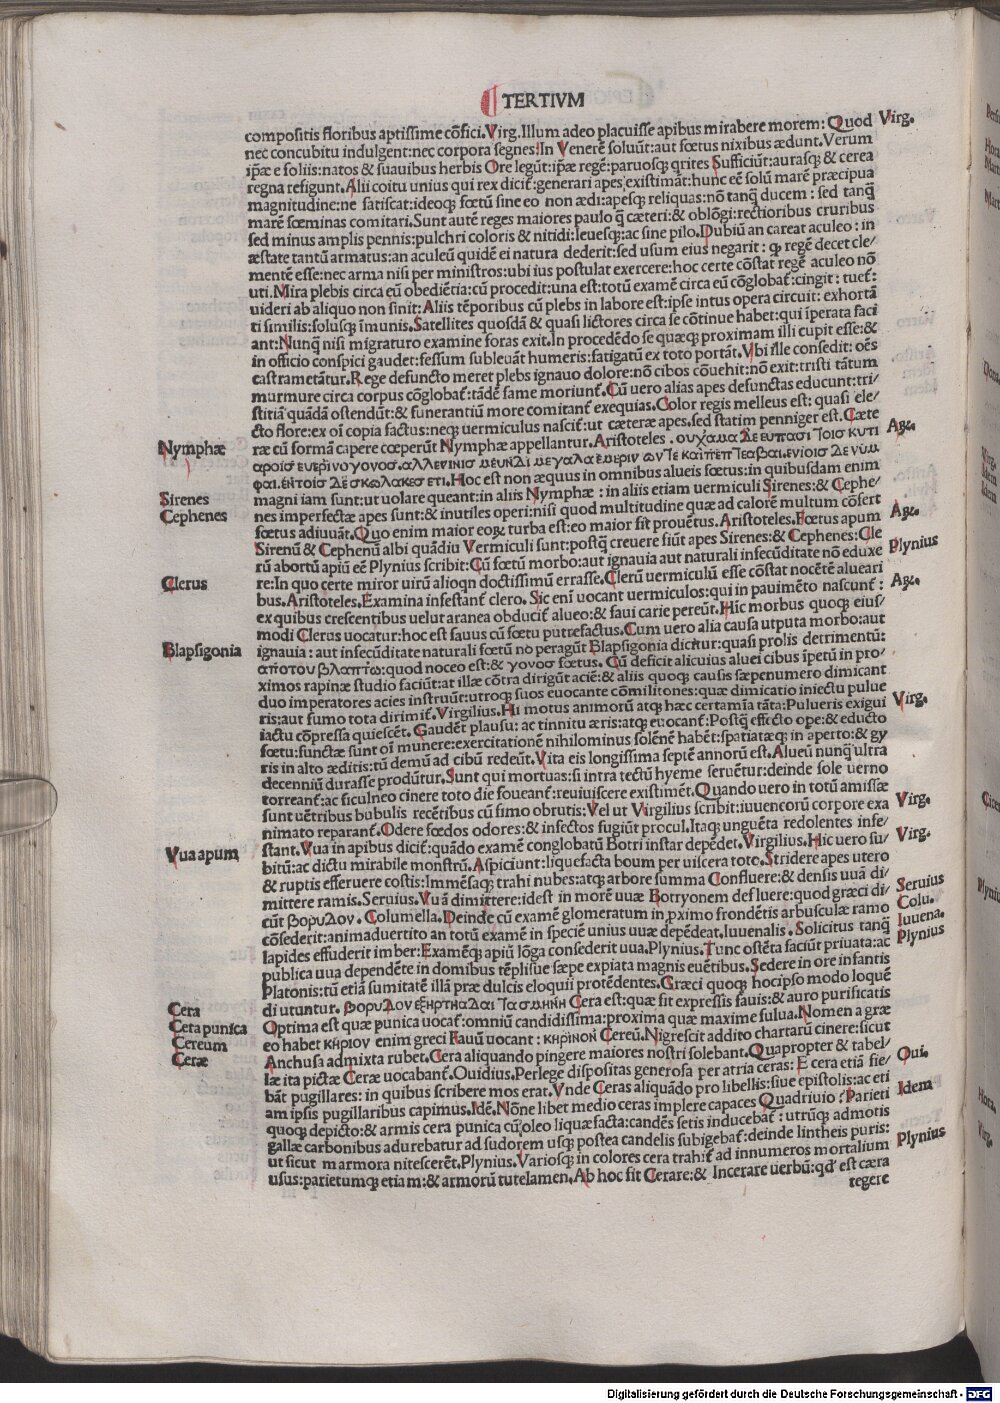 TERTIVM
compositis floribus aptissime cōfici. Virg. Illum adeo placuisse apibus mirabere morem: Quod Virg.
nec concubitu indulgent: nec corpora segnes In Venerē soluūt: aut fœtus nixibus ædunt. Verum
ipæ e foliis: natos & suauibus herbis Ore legūt: ipæ regē: paruosq; qrites Sufficiūt: aurasq; & cerea
regna refigunt. Alii coitu unius qui rex dicit̄: generari apes existimāt: hunc eē solū marē præcipua
magnitudine: ne fatiscat: ideoq; fœtū sine eo non ædi: apesq; reliquas: nō tanq̄ ducem: sed tanq̄
marē fœminas comitari. Sunt autē reges maiores paulo q̄ cæteri: & oblōgi: rectioribus cruribus
sed minus amplis pennis: pulchri coloris & nitidi: leuesq; ac sine pilo. Dubiū an careat aculeo: in
æstate tantū armatus: an aculeū quidē ei natura dederit: sed usum eius negarit: regē decet cle/
mentē esse: nec arma nisi per ministros: ubi ius postulat exercere: hoc certe cōstat regē aculeo nō
uti. Mira plebis circa eū obediētia: cū procedit: una est: totū examē circa eū cōglobat̄: cingit: tuet̄:
uideri ab aliquo non sinit: Aliis tēporibus cū plebs in labore est: ipse intus opera circuit: exhortā
ti similis: solusq; īmunis. Satellites quosdā & quasi lictores circa se cōtinue habet: qui īperata faci
ant: Nunq̄ nisi migraturo examine foras exit. In procedēdo se quæq; proximam illi cupit esse: &
in officio conspici gaudet: fessum subleuāt humeris: fatigatū ex toto portāt. Vbi ille consedit: oēs
castrametātur. Rege defuncto meret plebs ignauo dolore: nō cibos cōuehit: nō exit: tristi tātum
murmure circa corpus cōglobat̄: tādē fame moriunt̄. Cū uero alias apes defunctas educunt: tri/
stitiā quādā ostendūt: & funerantiū more comitant̄ exequias. Color regis melleus est: quasi ele/
cto flore: ex oī copia factus: neq; uermiculus nascit̄: ut cæteræ apes. sed statim penniger est. Cæte
Nymphæ ræ cū formā capere cœperūt Nymphæ appellantur. Aristoteles.
magni iam sunt: ut uolare queant: in aliis Nymphæ: in aliis etiam uermiculi Sirenes: & Cephe/
Sirenes
Cephenes nes imperfectæ apes sunt: & inutiles operi: nisi quod multitudine quæ ad calorē multum cōfert
fœtus adiuuāt. Quo enim maior turba est: eo maior fit prouētus. Aristoteles. Fœtus apum
Sirenū & Cephenū albi quādiu Vermiculi sunt: postq̄ creuere fiūt apes Sirenes: & Cephenes: Cle
rū abortū apiū eē Plynius scribit: Cū fœtū morbo: aut ignauia aut naturali infecūditate nō eduxe Plynius
Clerus re: In quo certe miror uirū alioqn doctissimū errasse. Clerū uermiculū esse cōstat nocētē alueari
bus. Aristoteles. Examina infestant̄ clero. Sic enī uocant uermiculos: qui in pauimēto nascunt̄:
ex quibus crescentibus uelut aranea obducit̄ alueo: & faui carie pereūt. Hic morbus quoq; eius/
modi Clerus uocatur: hoc est fauus cū fœtu putrefactus. Cum uero alia causa utputa morbo: aut
Blapsigonia ignauia: aut infecūditate naturali fœtū nō peragūt Blapsigonia dicitur: quasi prolis detrimentū:
quod noceo est: & γονοσ fœtus. Cū deficit alicuius aluei cibus īpetū in pro/
ximos rapinæ studio faciūt: at illæ cōtra dirigūt aciē: & aliis quoq; causis sæpenumero dimicant
duo imperatores acies instruūt: utroq; suos euocante cōmilitones: quæ dimicatio iniectu pulue
ris: aut fumo tota dirimit̄. Virgilius. Hi motus animorū atq; hæc certamīa tāta: Pulueris exigui Virg.
iactu cōpressa quiescēt. Gaudēt plausu: ac tinnitu æris: atq; euocant̄: Postq̄ effecto ope: & educto
fœtu: functæ sunt oī munere: exercitationē nihilominus solēnē habēt: spatiatæq; in aperto: & gy
ris in alto æditis: tū demū ad cibū redeūt. Vita eis longissima septē annorū est. Alueū nunq̄ ultra
decenniū durasse prodūtur. Sunt qui mortuas: si intra tectū hyeme seruētur: deinde sole uerno
torreant̄: ac ficulneo cinere toto die foueant̄: reuiuiscere existimēt. Quando uero in totū amissæ
sunt uētribus bubulis recētibus cū fimo obrutis: Vel ut Virgilius scribit: iuuencorū corpore exa Virg.
nimato reparant̄. Odere fœdos odores: & infectos fugiūt procul. Itaq; unguēta redolentes infe/
Vua apum stant. Vua in apibus dicit̄: quādo examē conglobatū Botri instar depēdet. Virgilius. Hic uero su/ Virg.
bitū: ac dictu mirabile monstrū. Aspiciunt: liquefacta boum per uiscera toto. Stridere apes utero
& ruptis efferuere costis: Immēsaq; trahi nubes: atq; arbore summa Confluere: & densis uuā di/
mittere ramis. Seruius. Vuā dimittere: idest in morē uuæ Botryonem defluere: quod græci di/ Seruius
cūt βορυδον. Columella. Deinde cū examē glomeratum in pximo frondētis arbusculæ ramo Colu.
cōsederit: animaduertito an totū examē in speciē unius uuæ depēdeat. Iuuenalis. Solicitus tanq̄ Iuuena.
lapides effuderit imber: Examēq; apiū lōga consederit uua. Plynius. Tunc ostēta faciūt priuata: ac Plynius
publica uua dependēte in domibus tēplisue sæpe expiata magnis euētibus. Sedere in ore infantis
Platonis: tū etiā sumitatē illā præ dulcis eloquii protēdentes. Græci quoq; hocipso modo loquē
Cera di utuntur. Cera est: quæ fit expressis fauis: & auro purificatis
Cera punica Optima est quæ punica uocat̄: omniū candidissima: proxima quæ maxime fulua. Nomen a græ
Cereum eo habet κηριον enim greci Fauū uocant: κηρινον Cereū. Nigrescit addito chartarū cinere: sicut
Ceræ Anchusa admixta rubet. Cera aliquando pingere maiores nostri solebant. Quapropter & tabel/
læ ita pictæ Ceræ uocabant̄. Ouidius. Perlege dispositas generosa per atria ceras: E cera etiā fie/ Oui.
bāt pugillares: in quibus scribere mos erat. Vnde Ceras aliquādo pro libellis: siue epistolis: ac eti
am ipsis pugillaribus capimus. Idē. Nōne libet medio ceras implere capaces Quadriuio? Parieti Idem
quoq; depicto: & armis cera punica cū oleo liquæfacta: candēs setis inducebat̄: utrūq; admotis
gallæ carbonibus adurebatur ad sudorem usq; postea candelis subigebat̄: deinde lintheis puris:
ut sicut marmora nitescerēt. Plynius. Variosq; in colores cera trahit̄ ad innumeros mortalium Plynius
usus: parietumq; etiam: & armorū tutelamen. Ab hoc fit Cerare: & Incerare uerbū: qd' est cæra
tegere
Digitalisierung gefördert durch die Deutsche Forschungsgemeinschaft - DFG